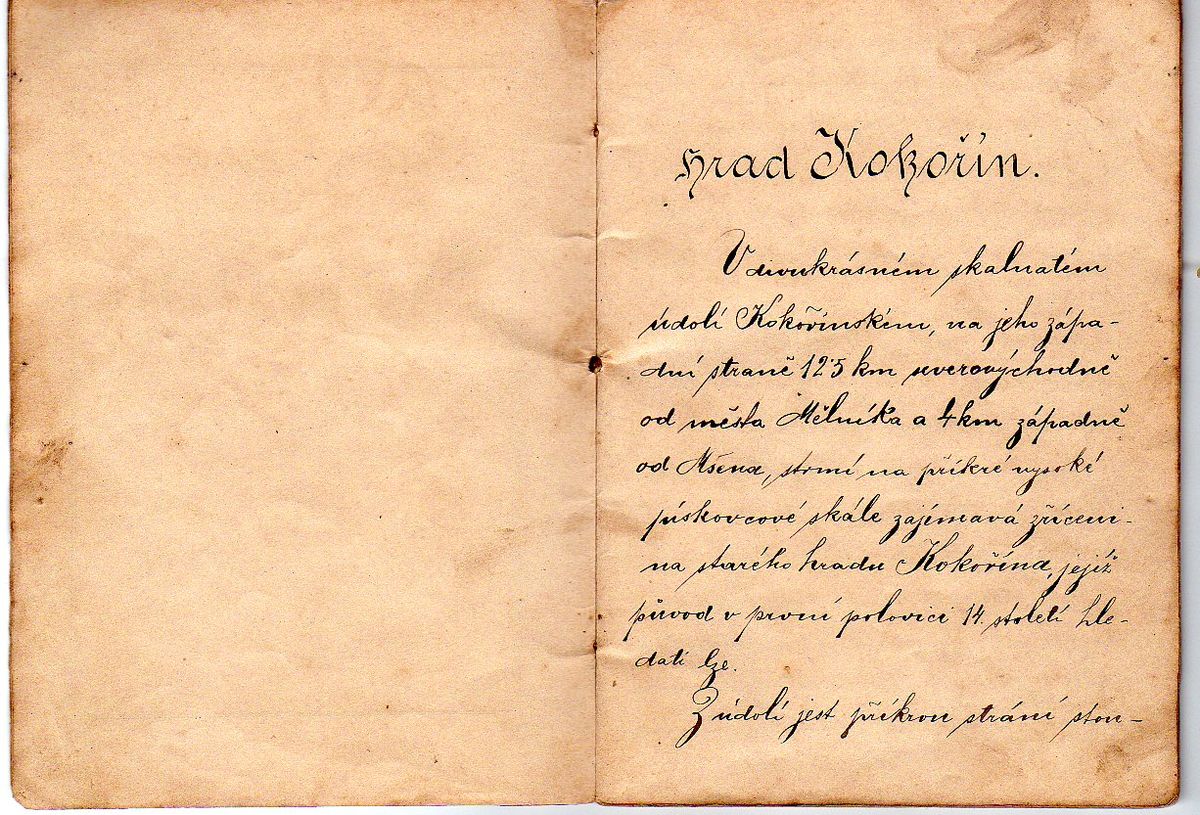 hrad Kokořín.
V divukrásném skalnatém
údolí Kokořínském, na jeho zápa-
dní straně 12·5 km severovýchodně
od města Mělníka a 4 km západně
od Mšena, strmí na příkré vysoké
pískovcové skále zajímavá zříceni-
na starého hradu Kokořína, jejíž
původ v první polovici 14. století hle-
dati lze.
Z údolí jest příkrou strání stou-